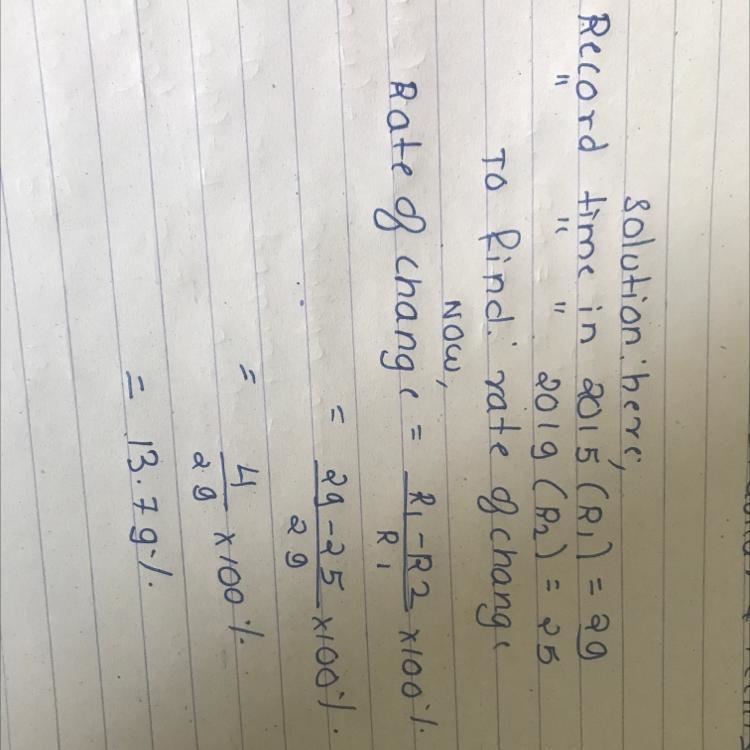 Solution: here,
Record time in 2015 (R1) = 29
" " " 2019 (R2) = 25
To find: rate of change
Now,
Rate of change = R1-R2/R1 x100%
= 29-25/29 x100%.
= 4/29 x100%.
= 13.79%.